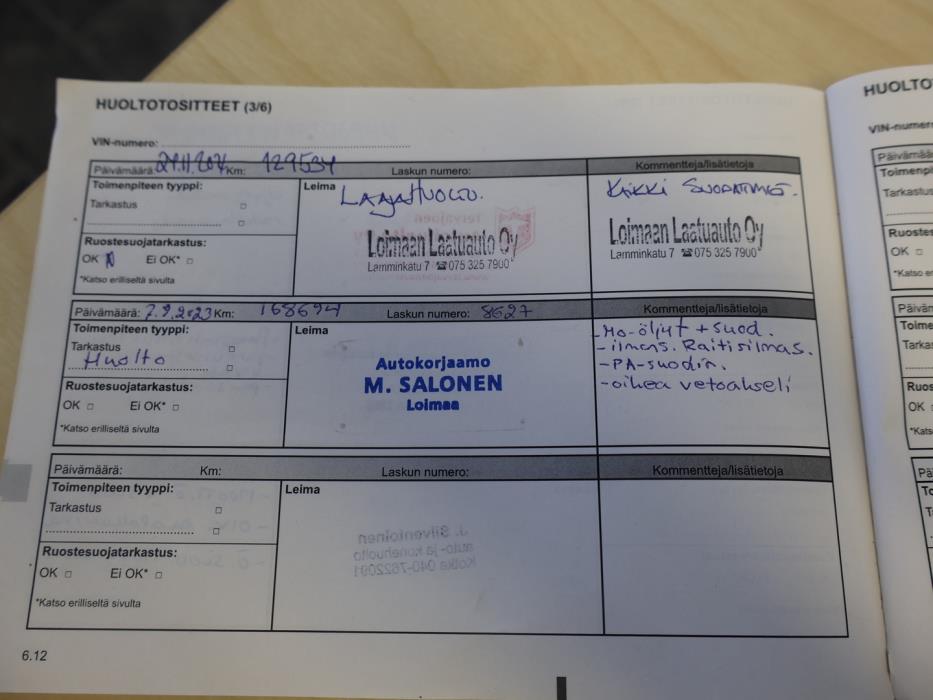 HUOLTOTOSITTEET (3/6)
HUOLTO
VIN-numero:
VIN-numero
Päivämäärä: Km: 129534 Laskun numero: Kommentteja/lisätietoja
Toimenpiteen tyyppi:
Tarkastus
Ruostesuojatarkastus:
OK Ei OK*
*Katso erilliseltä sivulta
Leima
LAAJAHUOLTO.
Loimaan Laatuauto Oy
Lamminkatu 7 ☎075 325 7900
KAIKKI SUODATTIMET.
Loimaan Laatuauto Oy
Lamminkatu 7 ☎075 325 7900
Päivämäärä: 7.9.2023 Km: 168694 Laskun numero: 8627
Toimenpiteen tyyppi:
Tarkastus
Huolto
Ruostesuojatarkastus:
OK Ei OK*
*Katso erilliseltä sivulta
Leima
Autokorjaamo
M. SALONEN
Loimaa
-Mo-öljyt + suod.
-ilmans. Raitisilmas.
-PA-suodin.
-oikea vetoakseli
Päivämäärä: Km: Laskun numero: Kommentteja/lisätietoja
Toimenpiteen tyyppi:
Tarkastus
Ruostesuojatarkastus:
OK Ei OK*
*Katso erilliseltä sivulta
Leima
J. Silvenoinen
auto- ja konehuolto
Kotka 040-7622091
6.12